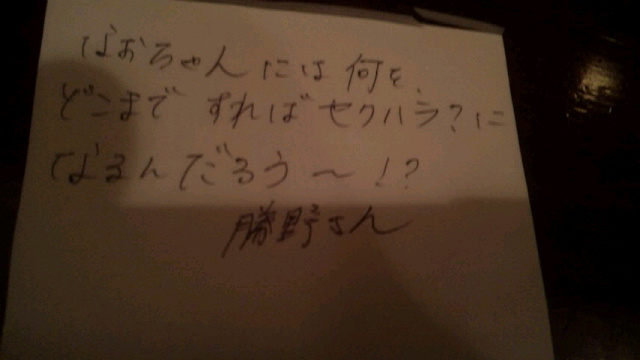 なおちゃんには何を、
どこまですればセクハラ?に
なるんだろう〜!?
勝野さん